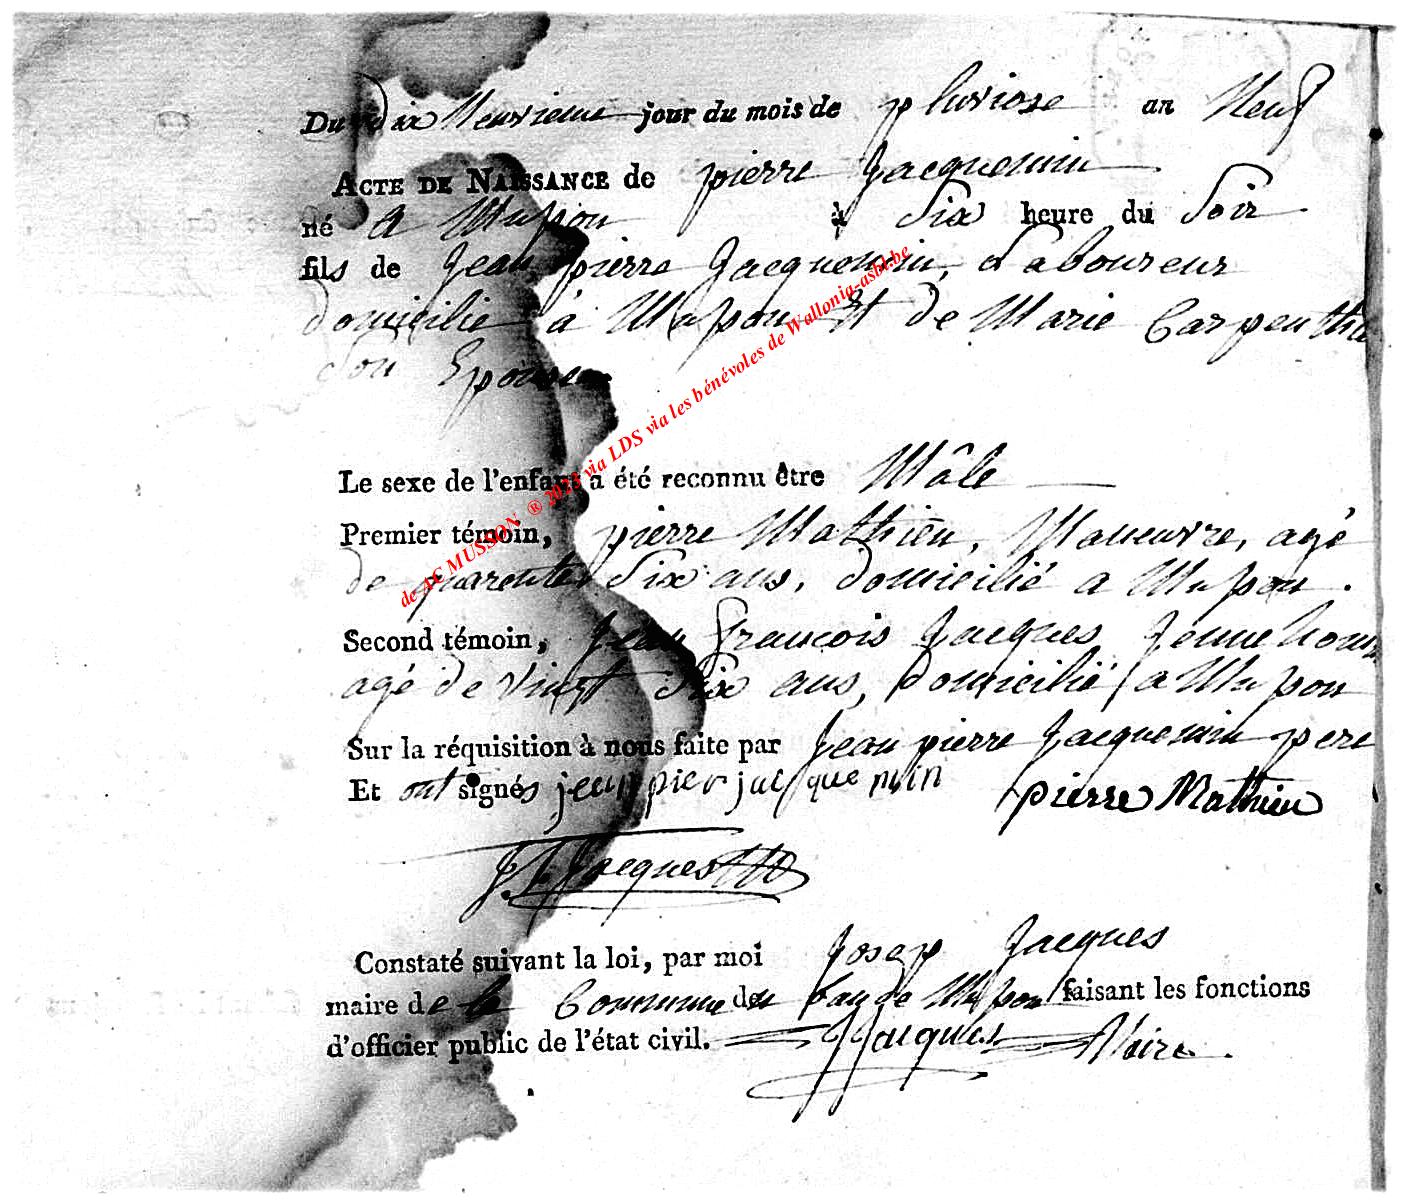 Du dix Neuvieme jour du mois de pluviose an Neuf
ACTE DE NAISSANCE de pierre Jacquemin
né a Musson à Six heure du Soir
fils de Jean pierre Jacquemin, Laboureur
domicilié à Musson Et de Marie Carpentier
Son Epouse
Le sexe de l'enfant a été reconnu être Mâle
Premier témoin, pierre Mathieu, Maneuvre, agé
de quarente Six ans, domicilié a Musson.
Second témoin, Jean françois Jacques Jeune homme
agé de vingt Six ans, domicilié a Musson
Sur la réquisition à nous faite par Jean pierre Jacquemin pere
Et ont signés jean pier jacquemin pierre Mathieu
J. f. Jacques
Constaté suivant la loi, par moi Josep Jacques
maire de la Commune du ban de Musson faisant les fonctions
d'officier public de l'état civil. JJacques Maire.
de AC MUSSON ® 2013 via LDS via les bénévoles de Wallonia-asbl.be